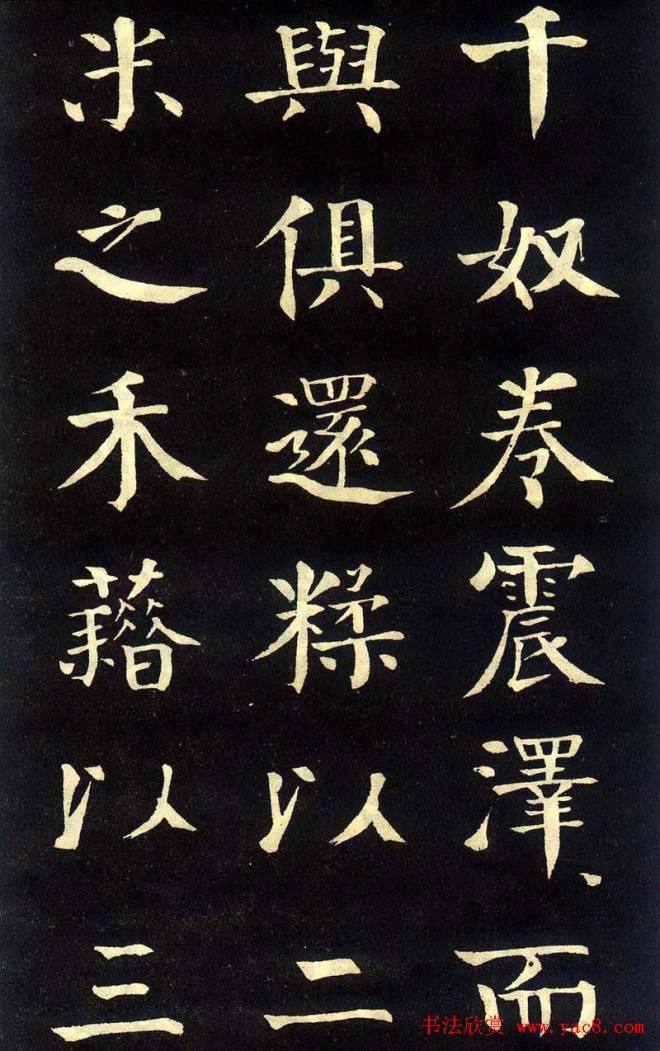 千奴卷震澤而
與俱還糅以二
米之禾藉以三
书法欣赏 www.yac8.com